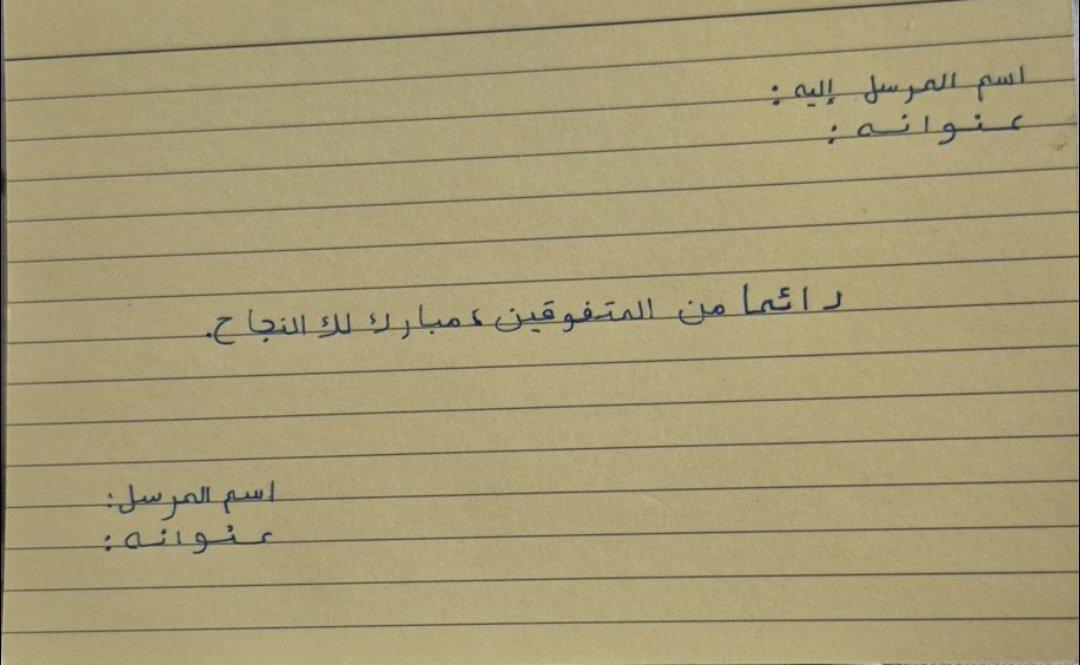 اسم المرسل إليه :
عنوانه :
دائما من المتفوقين، مبارك لك النجاح.
اسم المرسل :
عنوانه :